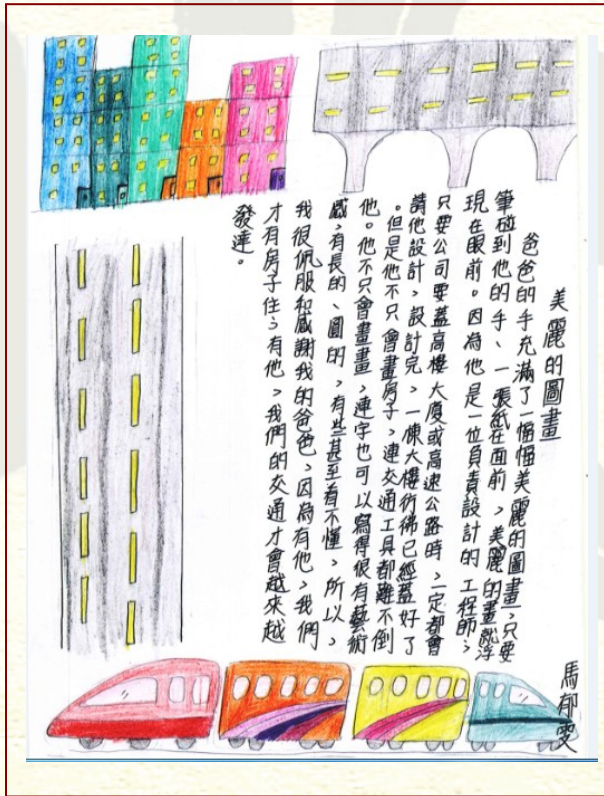 美麗的圖畫
馬郁雯
爸爸的手充滿了一幅幅美麗的圖畫,只要
筆碰到他的手、一張紙在面前,美麗的畫就浮
現在眼前。因為他是一位負責設計的工程師,
只要公司要蓋高樓大廈或高速公路時,一定都會
請他設計,設計完,一棟大樓彷彿已經蓋好了
。但是他不只會畫房子,連交通工具都難不倒
他。他不只會畫畫,連字也可以寫得很有藝術
感,有長的、圓的,有些甚至看不懂,所以,
我很佩服和感謝我的爸爸,因為有他,我們
才有房子住;有他,我們的交通才會越來越
發達。